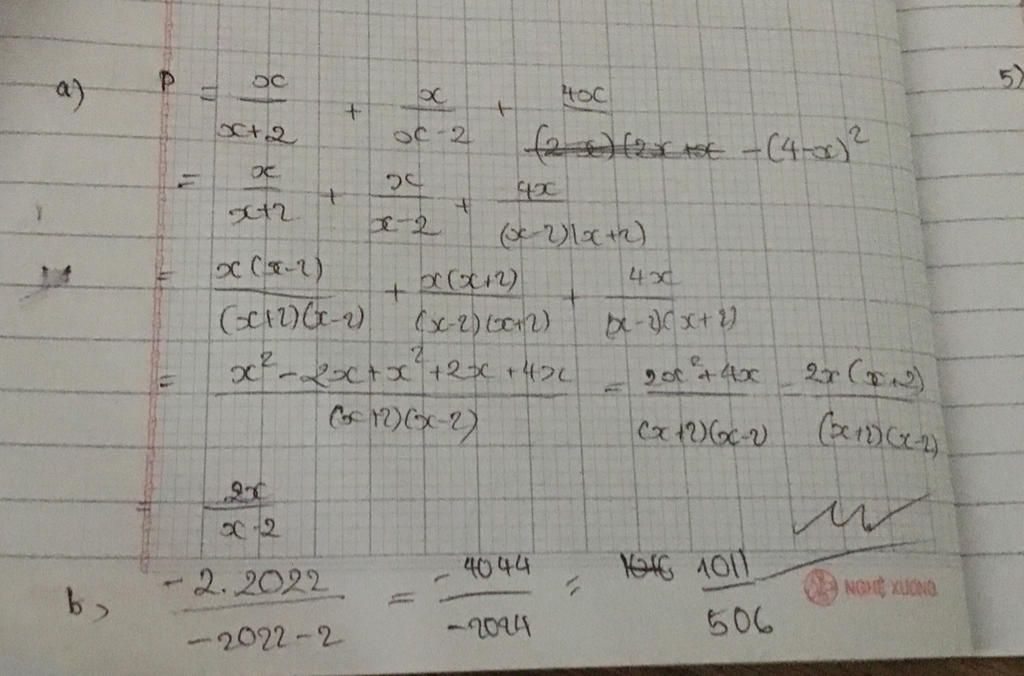 a) P = x/(x+2) + x/(x-2) + 4x/-(4-x)²
= x/(x+2) + x/(x-2) + 4x/(x-2)(x+2)
= x(x-2)/(x+2)(x-2) + x(x+2)/(x-2)(x+2) + 4x/(x-2)(x+2)
= (x²-2x+x²+2x+4x)/(x+2)(x-2) = (2x²+4x)/(x+2)(x-2) = 2x(x+2)/(x+2)(x-2)
= 2x/(x-2)
b, -2.2022/(-2022-2) = -4044/-2024 = 1011/506
NGHỆ XUONG
5)